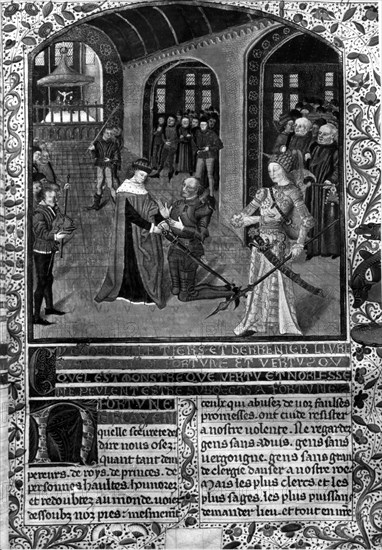 TIERS ET DERRENIER LIVR
TVNE ET VERTV OV
QVEL EST MONSTRE QVE VERTV ET NOBLESSE
A FORTVNE
FORTVNE
quelle seurete de
daire nous osez
quant tant dem
pereurs, de roys, de princes, de
personnes haultes, honnorez
et redoubtez au monde, voiez
dessoubz noz pies: mesmement
ceulx qui abusez de noz faulses
promesses, ont cuide resister
a nostre volente. Ne regardez
gens sans aduis. gens sans
vergongne. gens sans grant
de clergie danser a nostre roe
Mais les plus clercs, et les
plus sages. les plus puissans
demander lieu. et tout en